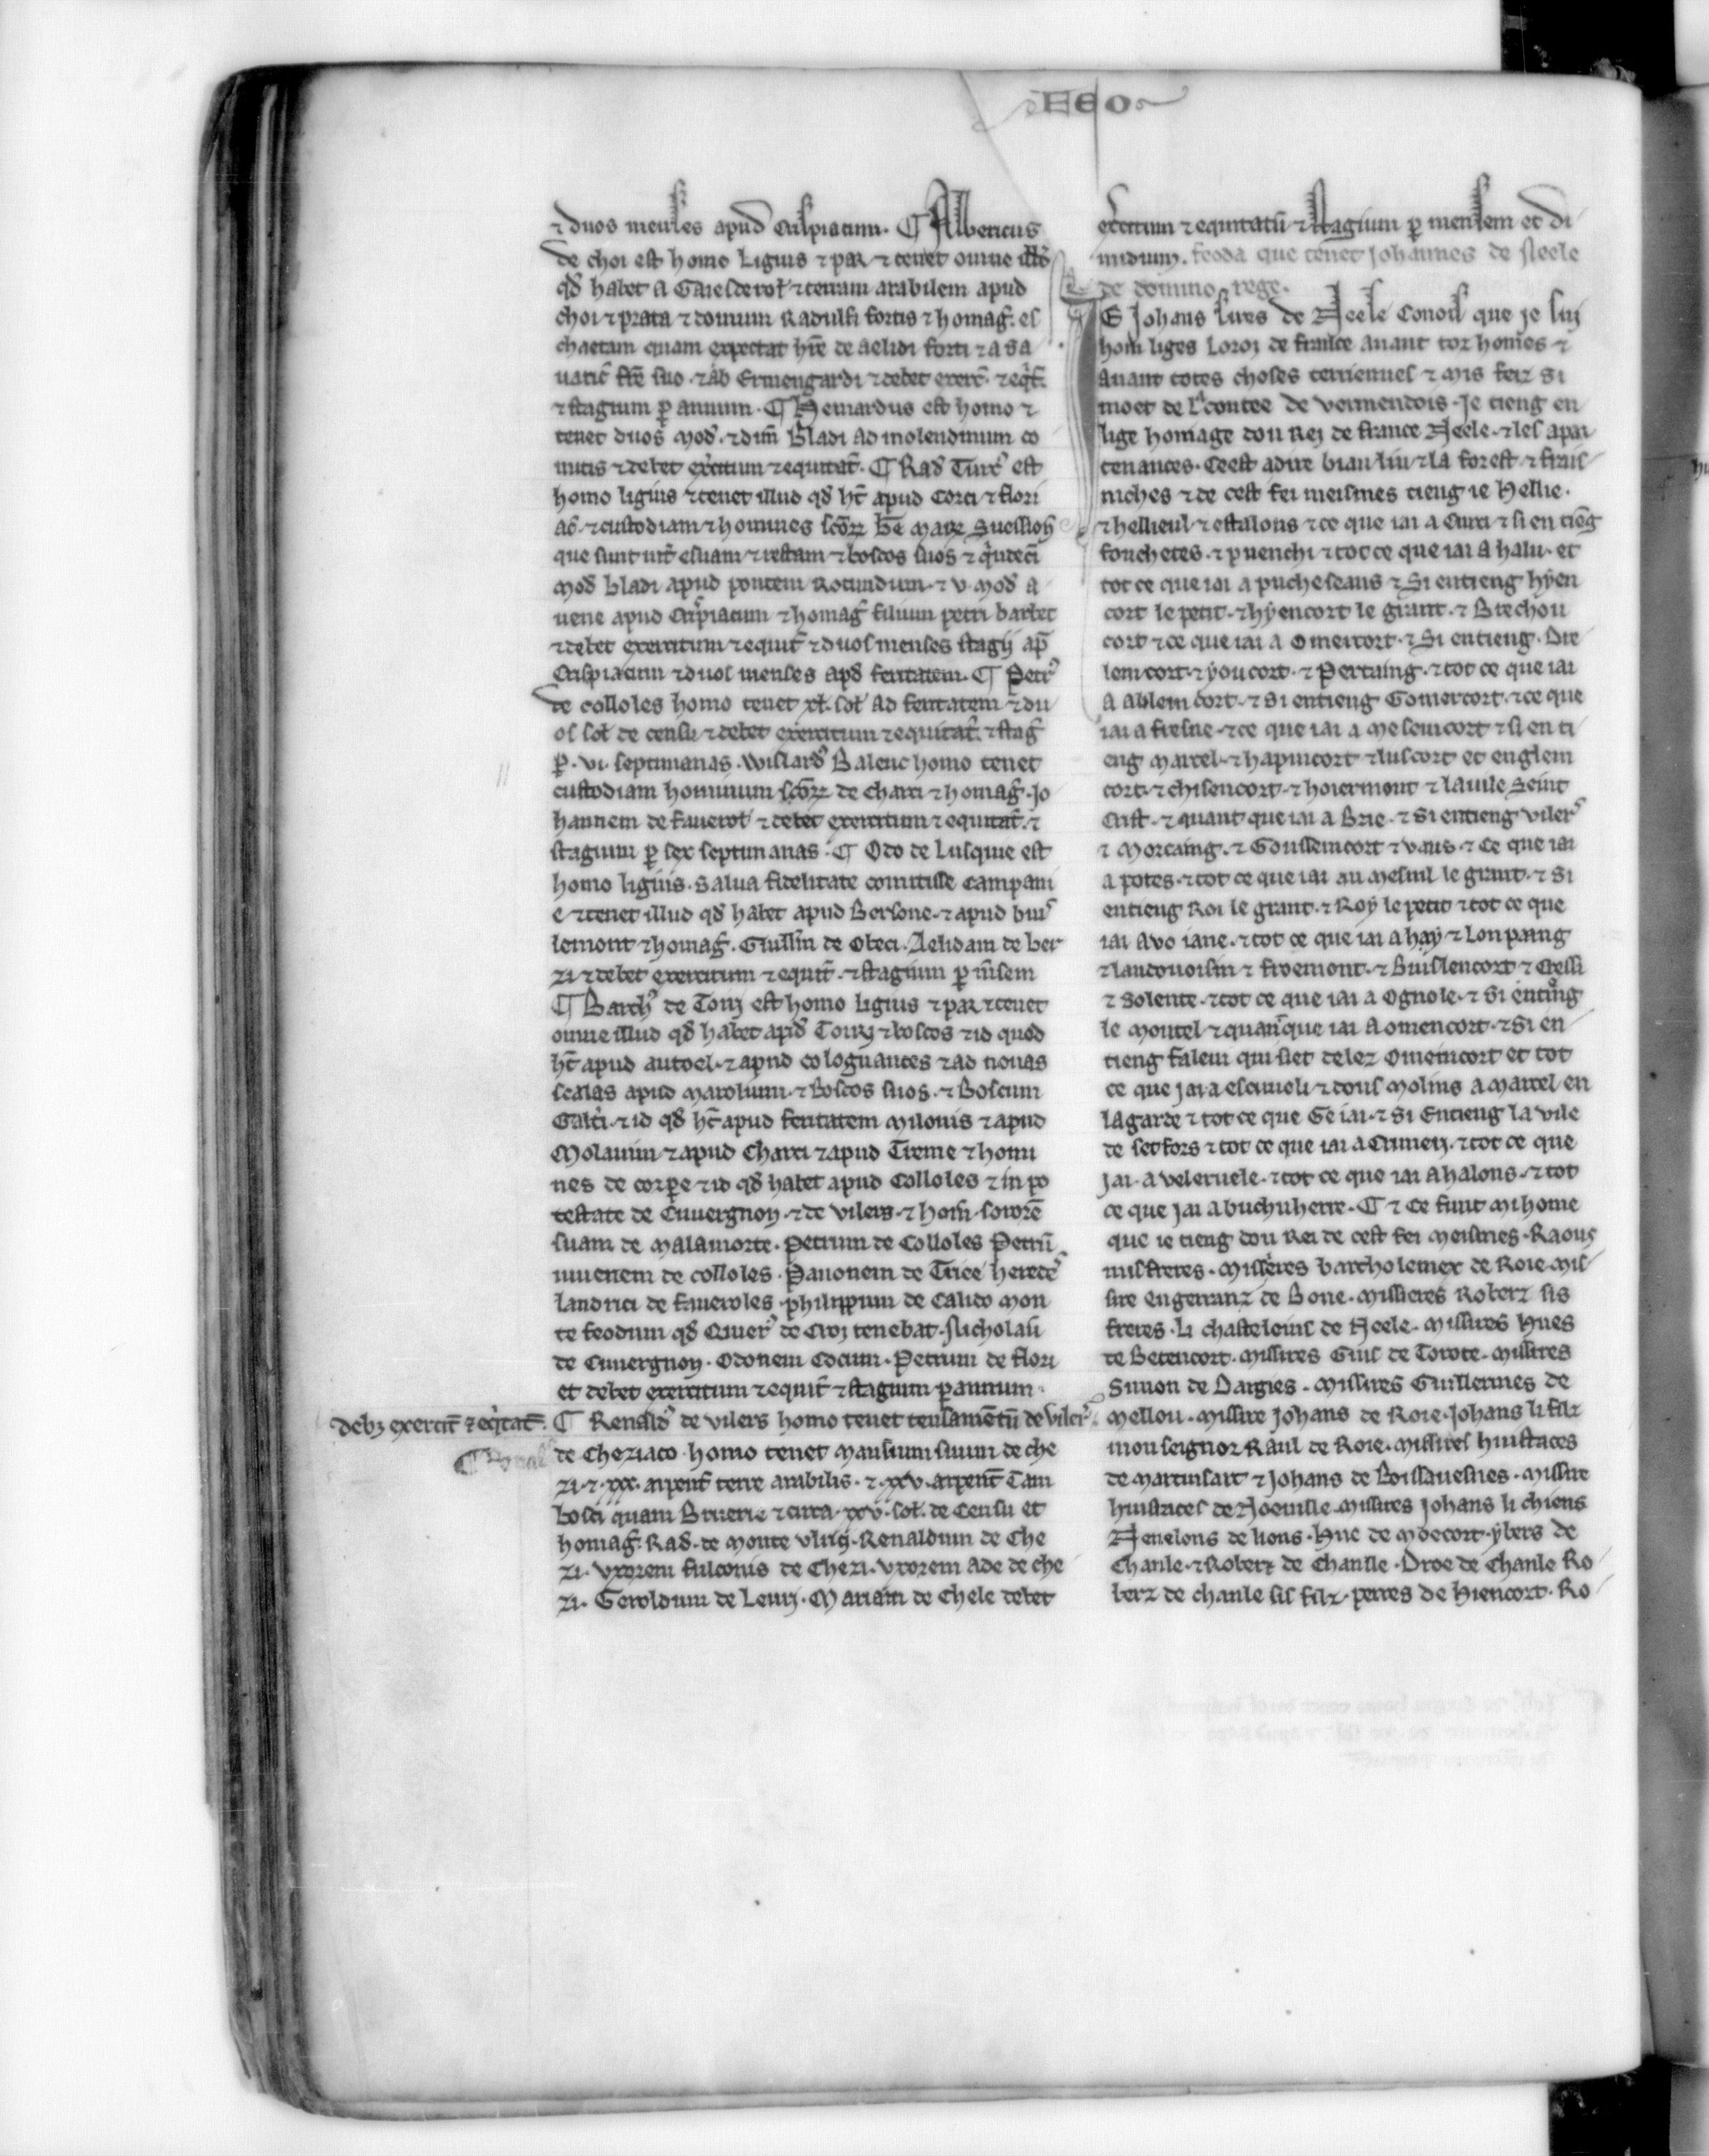 FEO
⁊ duos menses apud Crispiacum. ¶ Albericus
de choi est homo Ligius ⁊ par ⁊ tenet omne illud
qd habet a Gaiesderol ⁊ terram arabilem apud
choi ⁊ prata ⁊ domum Radulfi fortis ⁊ homag. es
chaetam quam expectat hre de aelidi forti ⁊ a sa
uatic fre suo ⁊ ab Ermengardi ⁊ debet exerc. ⁊ eqt.
⁊ stagium p annum. ¶ Henardus est homo ⁊
tenet duos mod. ⁊ dim bladi ad molendinum co
mitis ⁊ debet exercitum ⁊ equitat. ¶ Rad Turc est
homo ligius ⁊ tenet illud qd ht apud Corci ⁊ flori
ac ⁊ custodiam ⁊ homines scor be marie suession
que sunt int esuam ⁊ restam ⁊ boscos suos ⁊ quideci
mod bladi apud pontem Rotundum ⁊ v. mod a
uene apud Crispiacum ⁊ homag filium petri barbet
⁊ debet exercitum ⁊ equit ⁊ duos menses stagij ap
Crispiacum ⁊ duos menses apd feritatem. ¶ Petr
de colloles homo tenet xl. sol ad feritatem ⁊ du
os sol de censu ⁊ debet exercitum ⁊ equitat. ⁊ stag
p. vi. septimanas. Wislard Balenc homo tenet
custodiam hominum scor de Charci ⁊ homag. Jo
hannem de faverol ⁊ debet exercitum ⁊ equitat. ⁊
stagium p sex septimanas. ¶ Odo de Lusque est
homo ligius. salua fidelitate comitisse Campani
e ⁊ tenet illud qd habet apud Bersone ⁊ apud buis
lemont ⁊ homag. Guillm de Obeci. Aelidam de ber
zi ⁊ debet exercitum ⁊ equit. ⁊ stagium p msem
¶ Barth de Touri est homo ligius ⁊ par ⁊ tenet
omne illud qd habet apud Toury ⁊ boscos ⁊ id quod
ht apud autoel ⁊ apud cologuances ⁊ ad nouas
scalas apud marolium ⁊ boscos suos ⁊ Boscum
Galti ⁊ id qd ht apud feritatem milonis ⁊ apud
Molauim ⁊ apud Charci ⁊ apud Treme ⁊ homi
nes de corpe ⁊ id qd habet apud Colloles ⁊ in po
testate de Cuuergnon ⁊ de vilers ⁊ hom. sorore
suam de malamorte. Petrum de Colloles Petru
iuuenem de colloles. Pauonem de Trice herede
Landrici de faueroles. philippum de Calido mon
te feodum qd Oliuer de Croy tenebat. Nicholau
de Cuuergnon. Odonem Cocum. Petrum de flori
et debet exercitum ⁊ equit ⁊ stagium p annum.
¶ Renald de vilers homo tenet tensamentu de vilers.
debz exercit ⁊ eqtat.
¶ Renald
de Cheziaco homo tenet mansium suum de che
zi ⁊ xxx. arpent terre arabilis. ⁊ xxv. arpent Tam
bosci quam Bruerie ⁊ circa. xxv. sol. de Censu et
homag. Rad. de monte vlugi. Renaldum de Che
zi. Vxorem fulconis de Chezi. vxorem ade de che
zi. Geroldum de Leuri. Mariam de Chele debet
exercitum ⁊ equitatu ⁊ stagium p mensem et di
midium. feoda que tenet Johannes de Neele
de domino rege.
JE Johans sires de Neele Conois que je sui
hom liges Loroi de france auant toz homes ⁊
auant totes choses terriennes ⁊ mis feiz si
moet de La contee de vermendois. Je tieng en
lige homage dou Rei de france Neele ⁊ les apar
tenances. Ceest adire biau liu ⁊ la forest ⁊ frais
niches ⁊ de cest fei meismes tieng ie Hellie.
⁊ hellieul ⁊ estalons ⁊ ce que iai a Curci ⁊ si en tieg
fouchetes. ⁊ puenchi ⁊ tot ce que iai a halu. et
tot ce que iai a pucheseaus ⁊ Si entieng hyen
cort le petit ⁊ hyencort le grant ⁊ Brechou
cort ⁊ ce que iai a Omercort ⁊ Si entieng. Dre
lemcort ⁊ youcort ⁊ Pertaing ⁊ tot ce que iai
a Ablemcort ⁊ Si entieng Gomercort ⁊ ce que
iai a fresne ⁊ ce que iai a mesemcort ⁊ si en ti
eng marcel ⁊ hapincort ⁊ luscort et englem
cort ⁊ chisencort ⁊ hoiermont ⁊ la uile Seint
Crist ⁊ quant que iai a Brie ⁊ Si entieng vilers
⁊ Morcaing ⁊ Goussemcort ⁊ vaus ⁊ Ce que iai
a potes ⁊ tot ce que iai au mesnil le grant ⁊ Si
entieng Roi le grant ⁊ Roy le petit ⁊ tot ce que
iai a vo iane ⁊ tot ce que iai a hay ⁊ Lonpaing
⁊ landouoisin ⁊ froemont ⁊ Buislencort ⁊ Cressi
⁊ Solente ⁊ tot ce que iai a Ognole ⁊ Si entieng
le montel ⁊ quanque iai a omencort ⁊ Si en
tieng falem qui siet delez Omeincort et tot
ce que jai a escuueli ⁊ dous molins a marcel en
lagarde ⁊ tot ce que Ge iai ⁊ Si Entieng la vile
de setfors ⁊ tot ce que iai a Crimeri ⁊ tot ce que
jai a veleruele ⁊ tot ce que iai a halons ⁊ tot
ce que jai a buchuherre. ¶ ⁊ Ce sunt mi home
que ie tieng dou Rei de cest fei meismes. Raous
mis freres. missires bartholemex de Roie. mis
sire engerranz de Boue. missieres Roberz sis
freres. Li chasteleins de Neele. missires hues
de Betencort. missires Guis de Torote. missires
Simon de Dargies. missires Guillermes de
mellou. missire Johans de Roie. Johans li filz
monseignor Raul de Roie. missires huistaces
de martinsart ⁊ Johans de Boissauesnes. missire
huistaces de Noeuille missires Johans li chiens
Neuelons de hons. Hue de moecort. ybers de
Chanle ⁊ Roberz de Chanlle. Droe de Chanle Ro
berz de chanle sis filz. perres de Hiencort. Ro